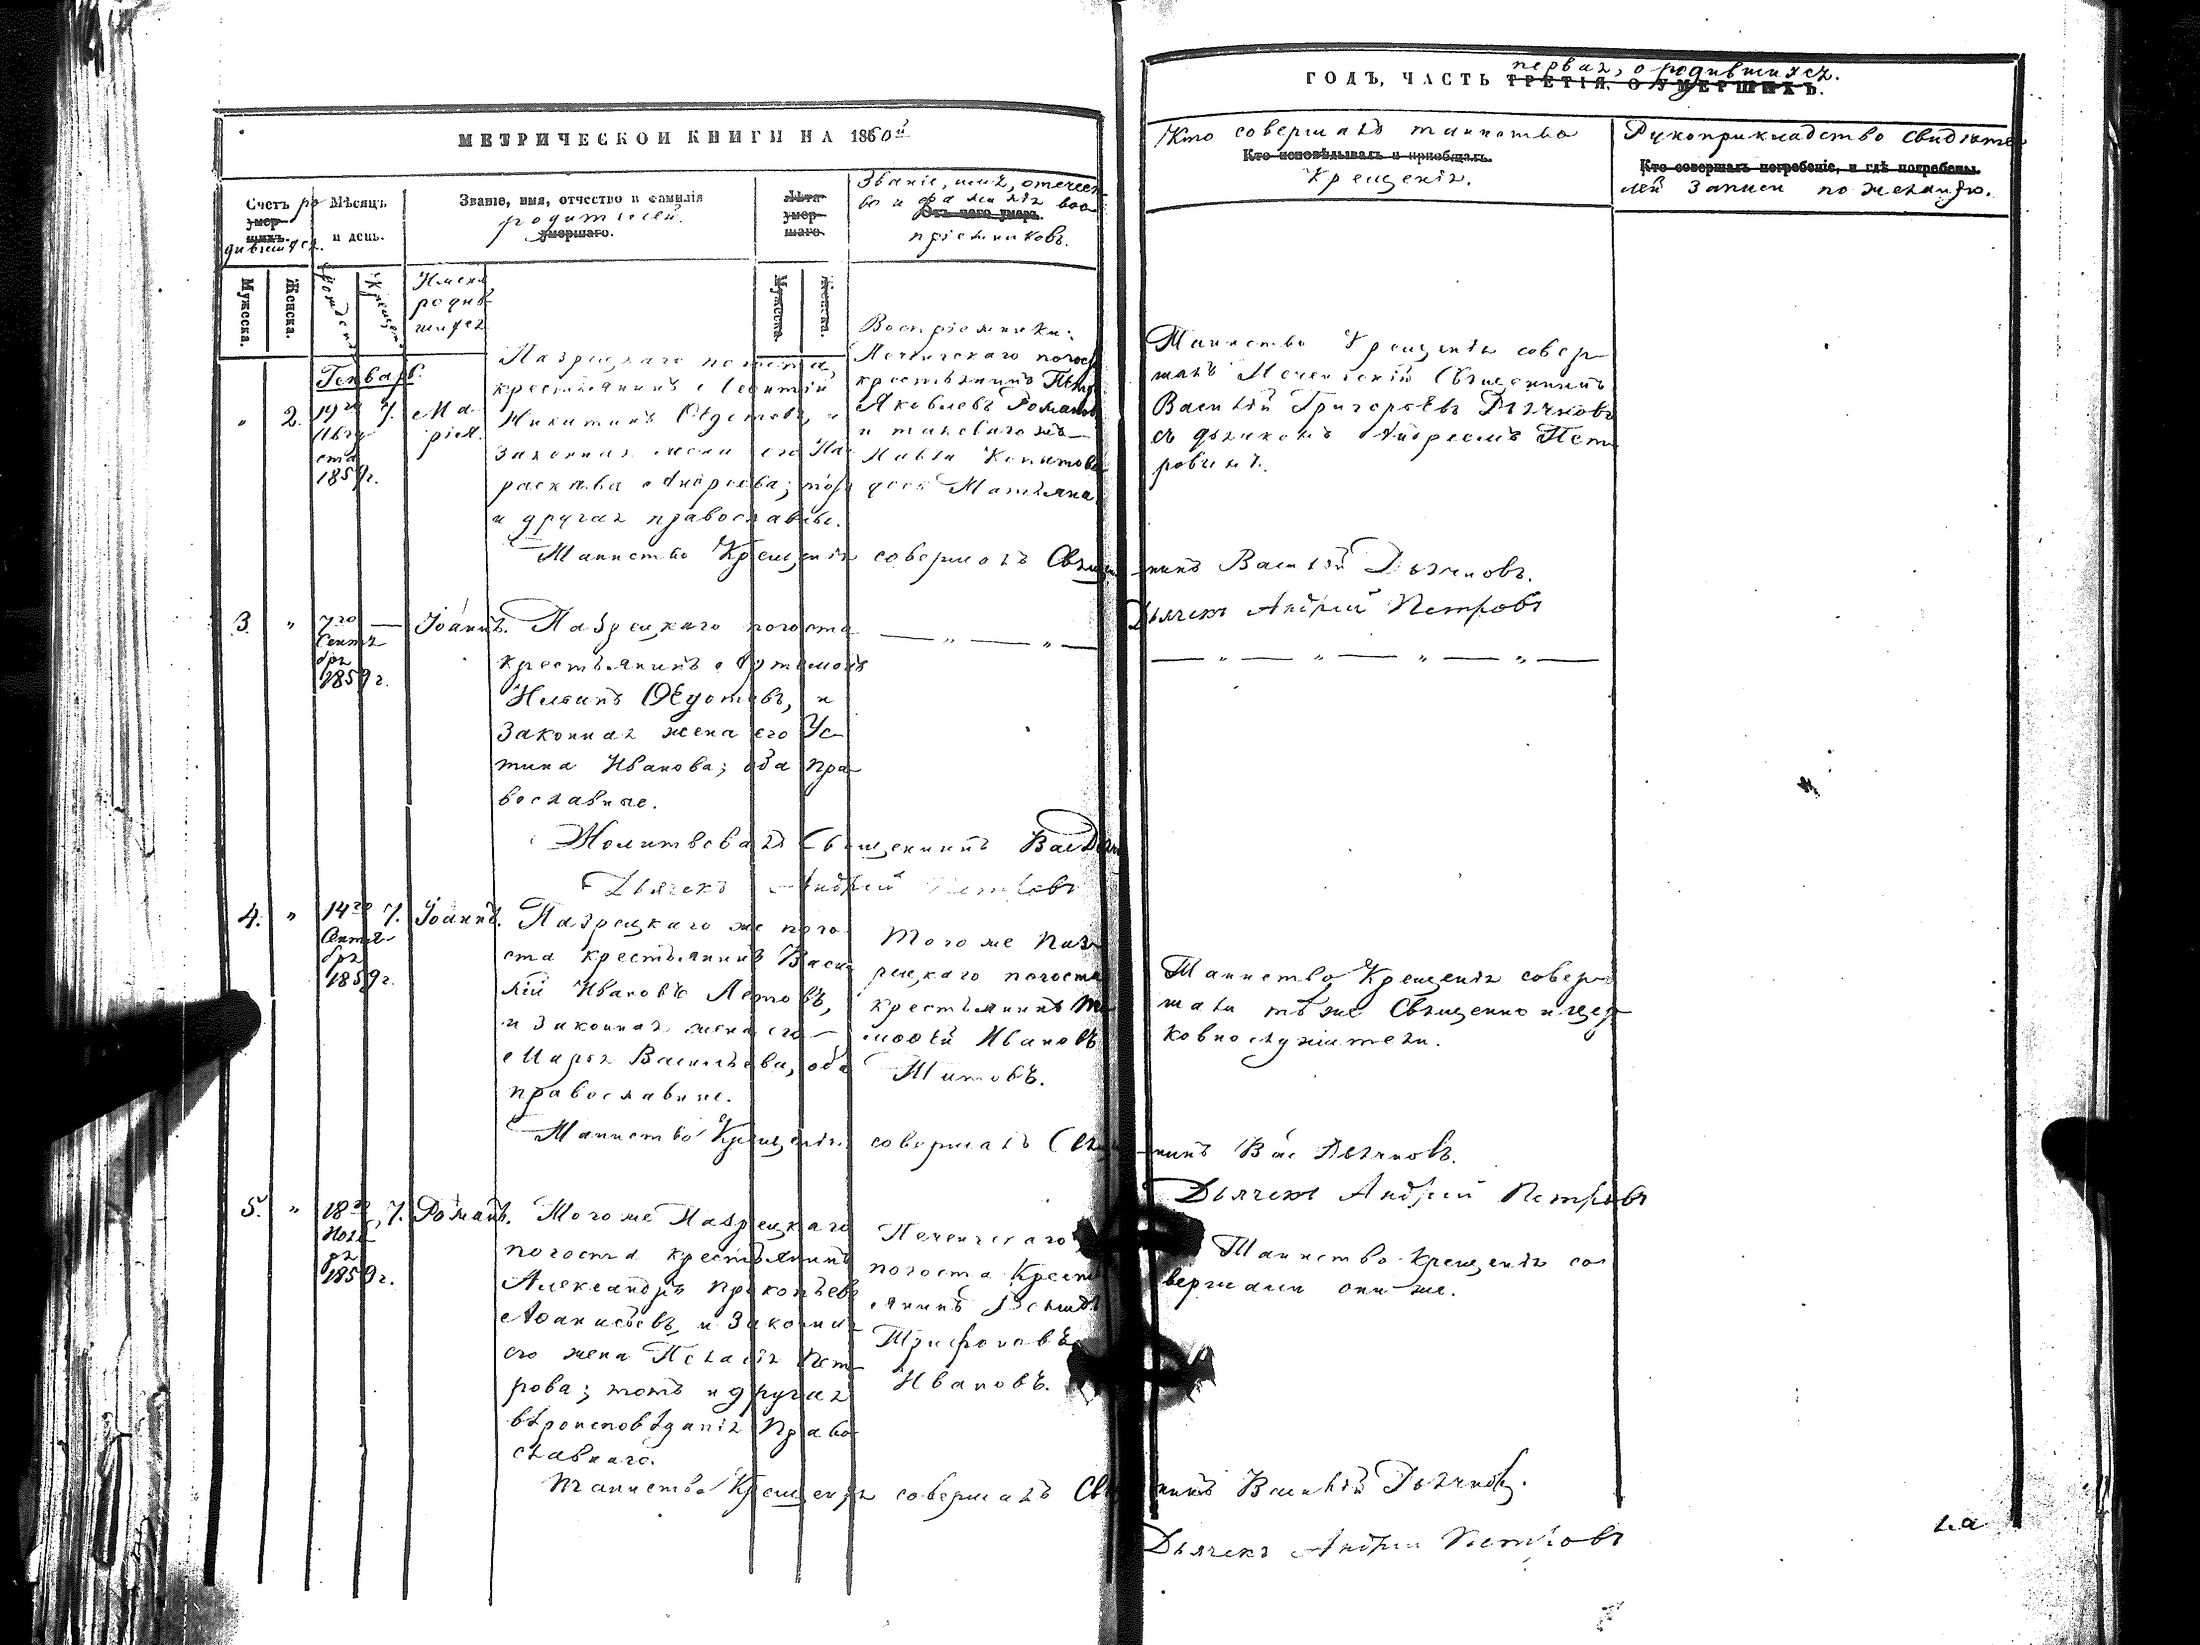 МЕТРИЧЕСКОЙ КНИГИ НА 1860й
ГОДЪ, ЧАСТЬ ТРЕТІЯ. О УМЕРШИХЪ.
первая, о родившихся.
Счетъ ро
умер-
шихъ.
дившихся.
Мѣсяцъ
и день.
Званіе, имя, отчество и фамилія
родителей.
умершаго.
Лѣта
умер-
шаго.
Званіе, имя, отечест
во и фамилія вос
Отъ чего умеръ.
пріемниковъ.
Кто совершалъ таинство
Кто исповѣдывалъ и пріобщалъ.
Крещенія.
Рукоприкладство свидѣте
Кто совершалъ погребеніе, и гдѣ погребены.
лей записи по желанію.
Мужеска.
Женска.
Имена
родив
шихся
Мужеска.
Женска.
Генварь.
" 2. 19го
Авгу
ста
1859г.
7.
Ма
рія.
Пазрецкаго погоста,
крестьянинъ Леонтій
Никитинъ Ѳедотовъ, и
законная жена его Па
раскева Андреева;
и другая православные.
Воспріемники:
Печенгскаго погос
крестьянинъ Петр
Яковлевъ Романов
и таковаго жъ
Павла Копытова
дочь Татьяна
Таинство Крещенія совер
шалъ Печенгскій Священникъ
Василій Григорьевъ Дьячковъ
съ дьячкомъ Андреемъ Пет
ровымъ.
Таинство Крещенія совершалъ Священникъ Василій Дьячковъ.
Дьячекъ Андрей Петровъ
3. " 7го
Сентя
бря
1859г.
—
Іоаннъ.
Пазрецкаго погоста
крестьянинъ Артамонъ
Ильинъ Ѳедотовъ, и
законная жена его Ус
тина Иванова; оба пра
вославные.
— " — " —
— " — " — " — " —
Молитвовалъ Священникъ Вас Дьяч
Дьячекъ Андрей Петровъ
4. " 14го
Сентя
бря
1859г.
7.
Іоаннъ.
Пазрецкаго же пого
ста крестьянинъ Васи
лій Ивановъ Летовъ,
и законная жена его
Марья Васильева, оба
православные.
Того же Паз
рецкаго погоста
крестьянинъ Ти
моѳей Ивановъ
Титовъ.
Таинство Крещенія совер
шали тѣ же Священно и цер
ковнослужители.
Таинство Крещенія совершалъ Священникъ Вас Дьячковъ.
Дьячекъ Андрей Петровъ
5. " 18го
Нояб
ря
1859г.
7.
Романъ.
Того же Пазрецкаго
погоста крестьянинъ
Александръ Прокопьевъ
Аѳанасьевъ, и законная
его жена Пелагія Пет
рова; тотъ и другая
вѣроисповѣданія Право
славнаго.
Печенгскаго
погоста Крест
янинъ
Трифоновъ
Ивановъ.
Таинство Крещенія со
вершали они же.
Таинство Крещенія совершалъ Священникъ Василій Дьячковъ.
Дьячекъ Андрей Петровъ